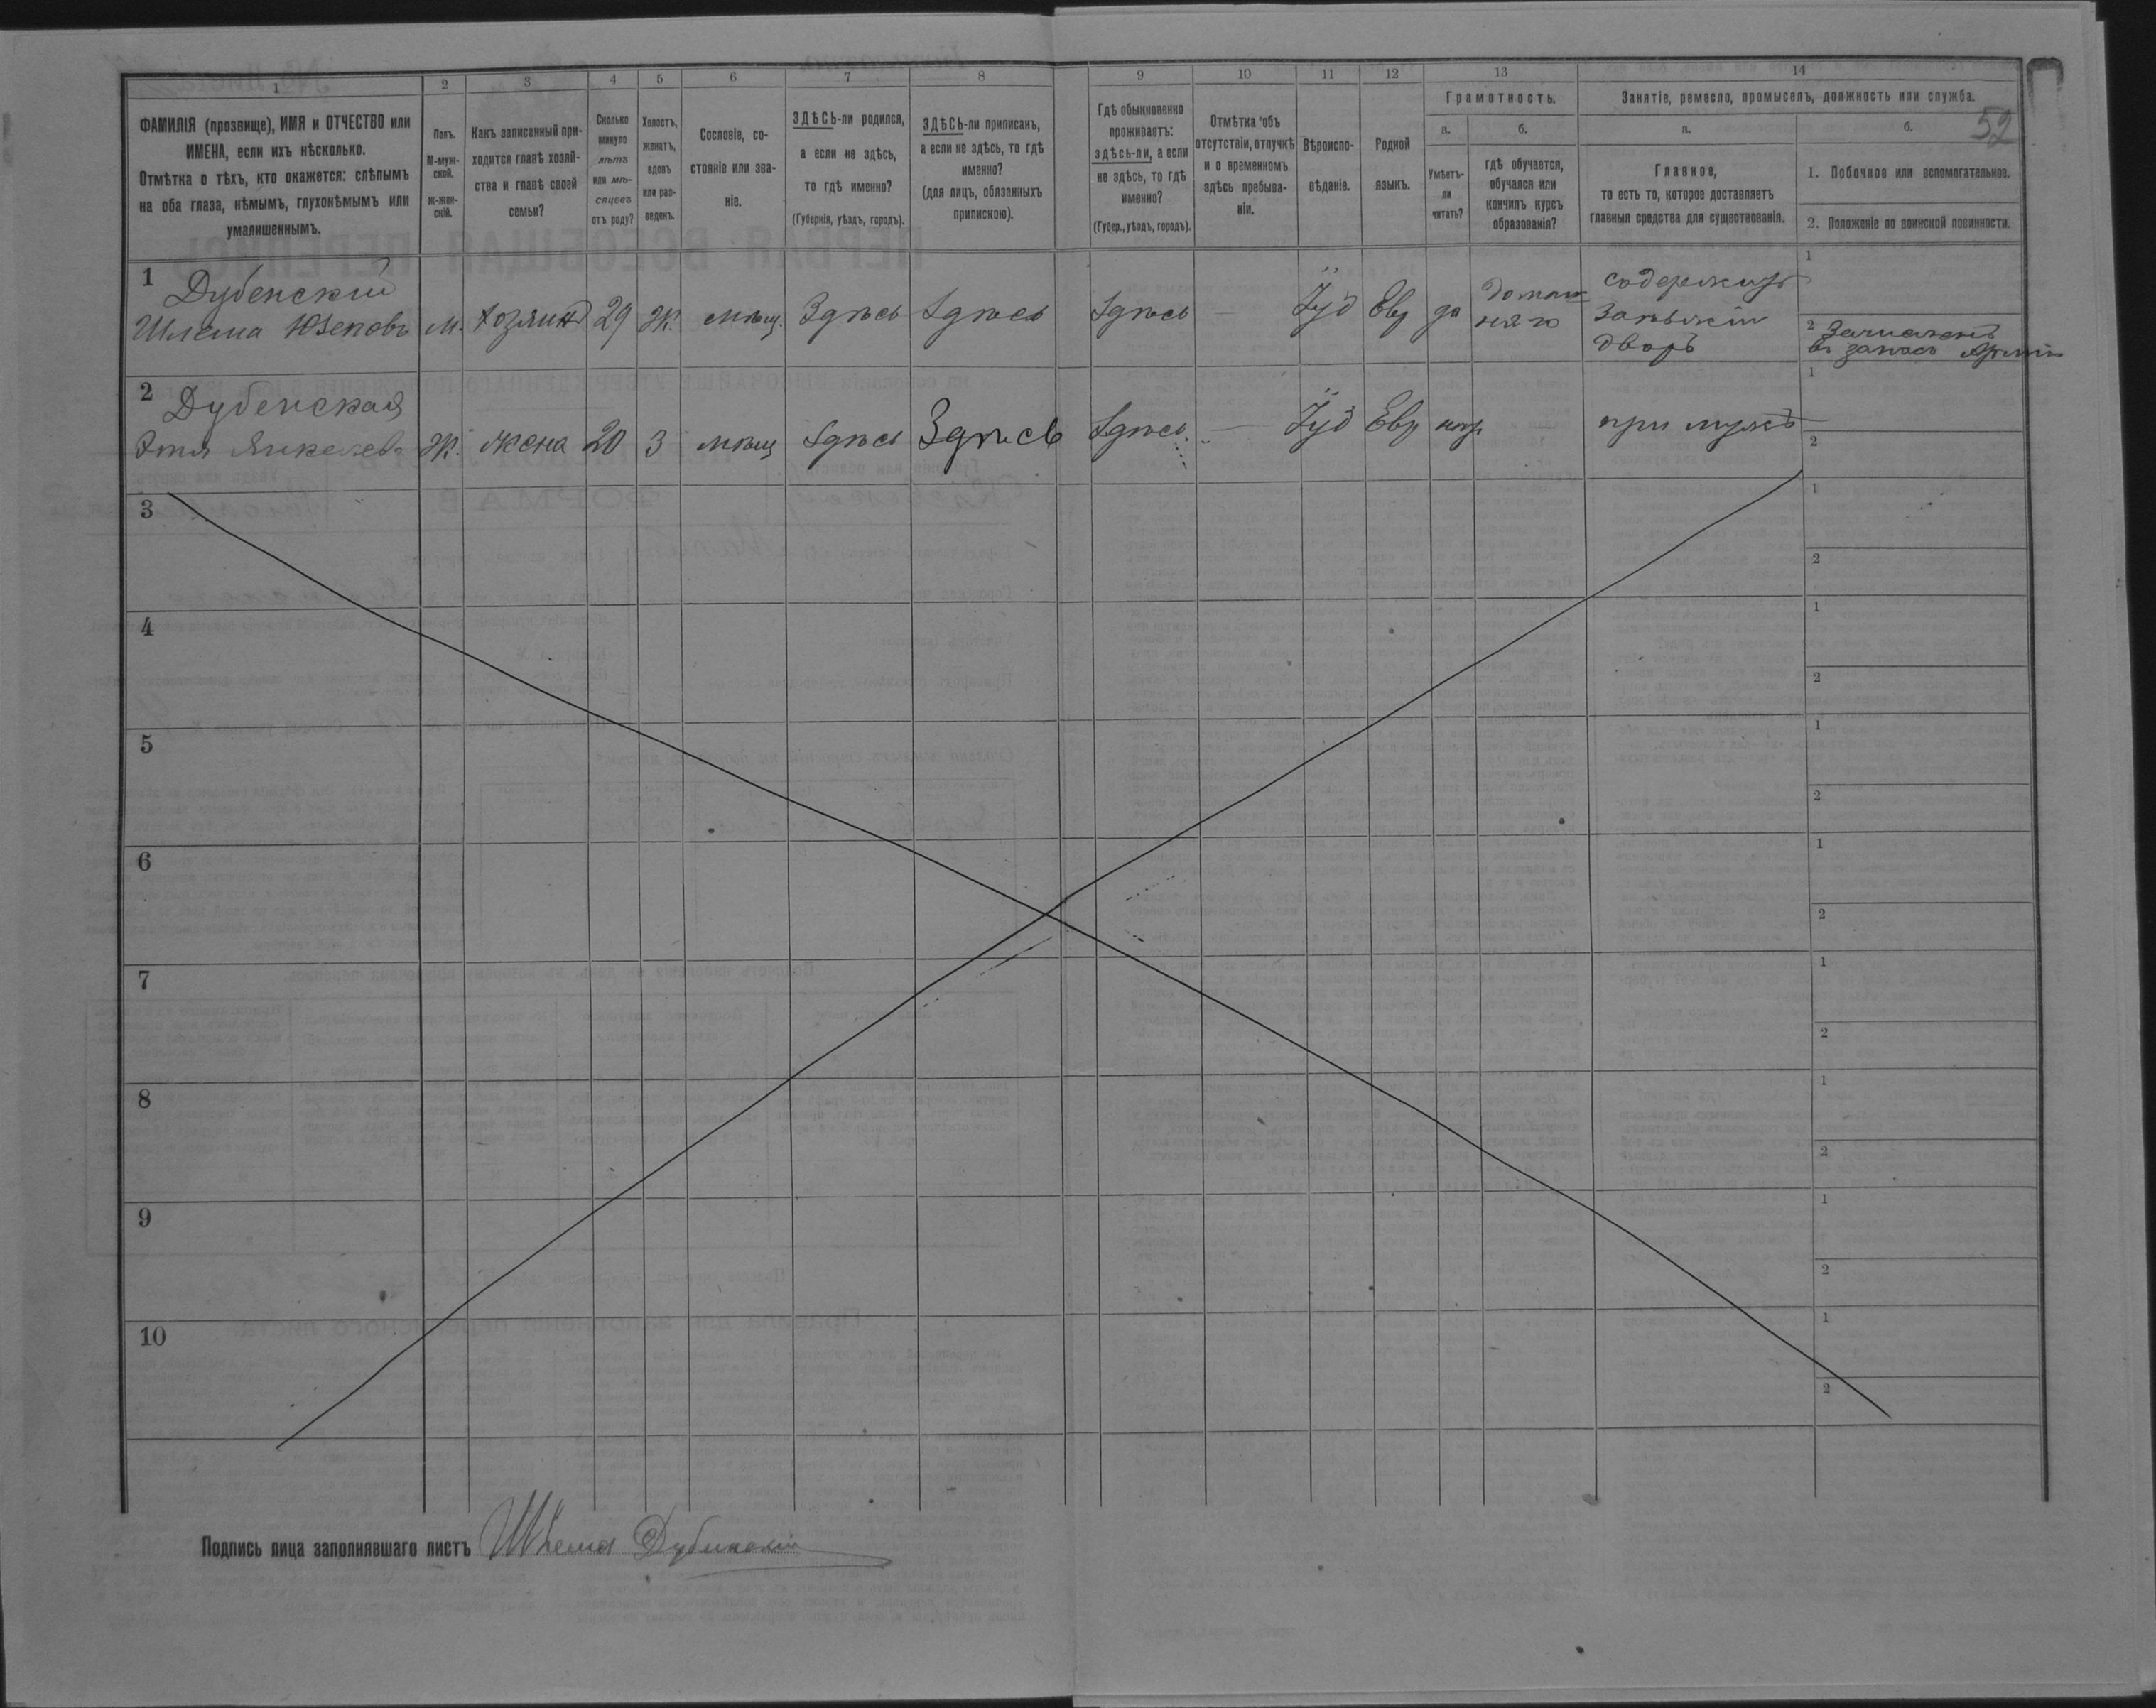 52
1 2 3 4 5 6 7 8 9 10 11 12 13 14
ФАМИЛІЯ (прозвище), ИМЯ и ОТЧЕСТВО или
ИМЕНА, если ихъ нѣсколько.
Отмѣтка о тѣхъ, кто окажется: слѣпымъ
на оба глаза, нѣмымъ, глухонѣмымъ или
умалишеннымъ.
Полъ.
М-муж-
ской.
ж-жен-
скій.
Какъ записанный при-
ходится главѣ хозяй-
ства и главѣ своей
семьи?
Сколько
минуло
лѣтъ
или мѣ-
сяцевъ
отъ роду?
Холостъ,
женатъ,
вдовъ
или раз-
веденъ.
Сословіе, со-
стояніе или зва-
ніе.
ЗДѢСЬ-ли родился,
а если не здѣсь,
то гдѣ именно?
(Губернія, уѣздъ, городъ).
ЗДѢСЬ-ли приписанъ,
а если не здѣсь, то гдѣ
именно?
(для лицъ, обязанныхъ
припискою).
Гдѣ обыкновенно
проживаетъ:
здѣсь-ли, а если
не здѣсь, то гдѣ
именно?
(Губер., уѣздъ, городъ).
Отмѣтка объ
отсутствіи, отлучкѣ
и о временномъ
здѣсь пребыва-
ніи.
Вѣроиспо-
вѣданіе.
Родной
языкъ.
Грамотность.
а.
Умѣетъ-
ли
читать?
б.
гдѣ обучается,
обучался или
кончилъ курсъ
образованія?
Занятіе, ремесло, промыселъ, должность или служба.
а.
Главное,
то есть то, которое доставляетъ
главныя средства для существованія.
б.
1. Побочное или вспомогательное.
2. Положеніе по воинской повинности.
1
Дубенский
Шлема Юзеповъ
м.
хозяинъ
29
Ж.
мѣщ.
Здѣсь
Здѣсь
Здѣсь
—
Іуд
Евр
да
домаш
няго
содержитъ
заѣзжій
дворъ
1
2 Зачисленъ
въ запасъ Арміи
2
Дубенская
Этя Янкелев
Ж.
жена
20
З
мѣщ
Здѣсь
Здѣсь
Здѣсь
—
Іуд
Евр
при мужѣ
1
2
3
1
2
4
1
2
5
1
2
6
1
2
7
1
2
8
1
2
9
1
2
10
1
2
Подпись лица заполнявшаго листъ Шлема Дубинский